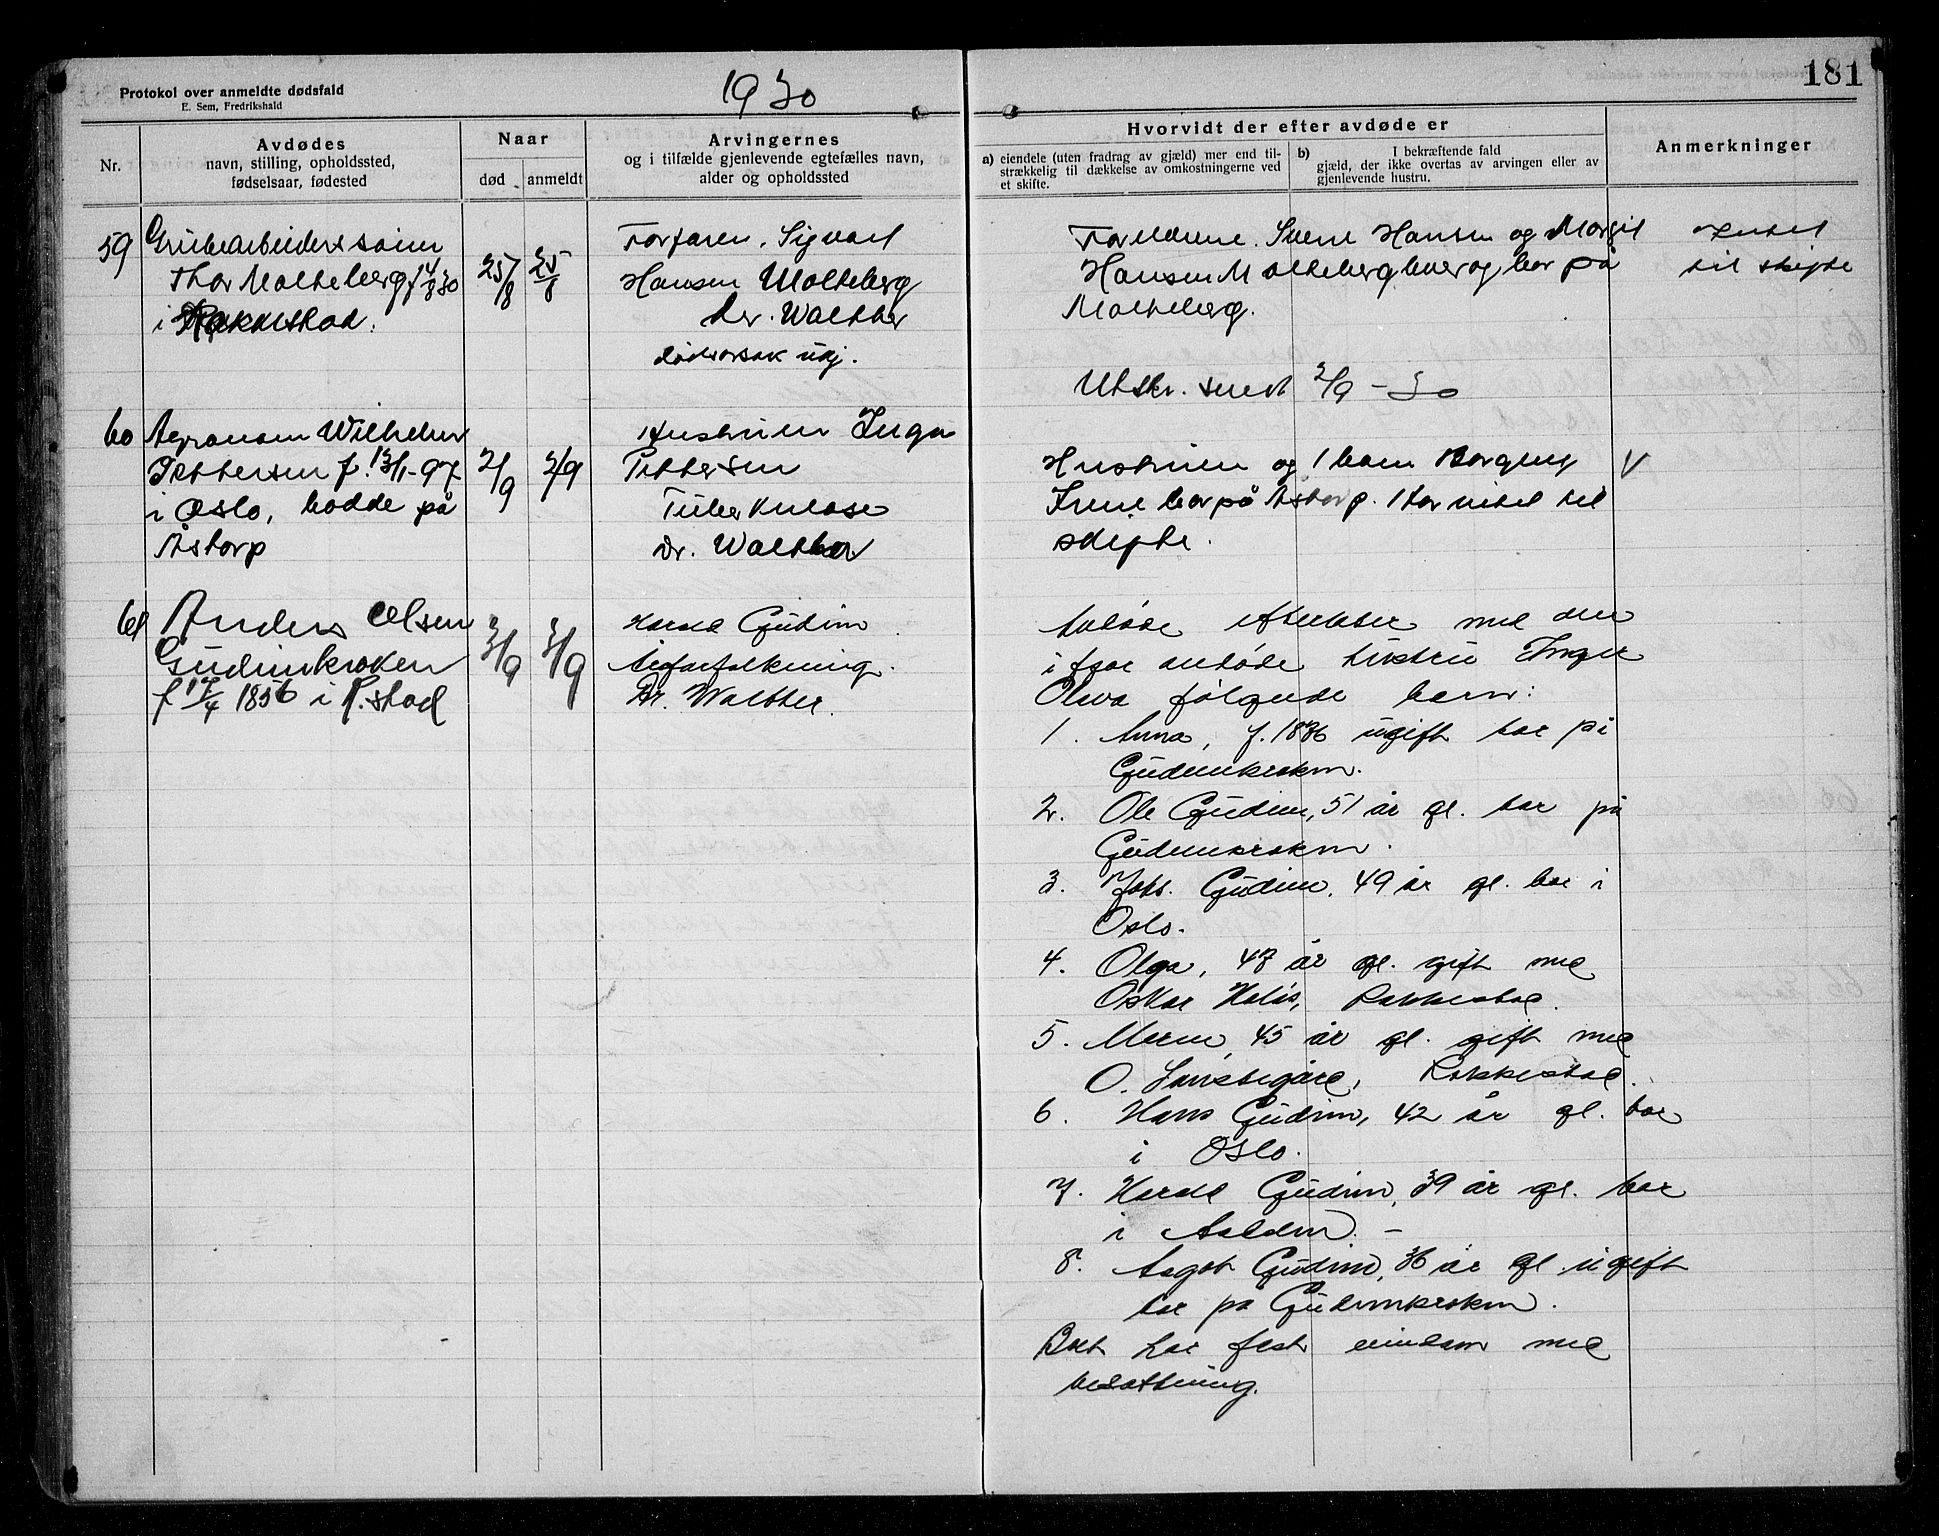 181
Protokol over anmeldte dødsfald
E. Sem, Fredrikshald
1930
Nr.
Avdødes
navn, stilling, opholdssted,
fødselsaar, fødested
Naar
død
anmeldt
Arvingernes
og i tilfælde gjenlevende egtefælles navn,
alder og opholdssted
Hvorvidt der efter avdøde er
a) eiendele (uten fradrag av gjæld) mer end til-
strækkelig til dækkelse av omkostningerne ved
et skifte.
b) I bekræftende fald
gjæld, der ikke overtas av arvingen eller av
gjenlevende hustru.
Anmerkninger
59
Grubearbeiders sønn
Thor Molteberg f 4/8 30
i Rakkestad.
25/8
25/8
Forfaren. Sigvart
Hansen Molteberg
Dr. Walther
dødsorsak
Foreldrene. Hansen og Margit
Hansen Molteberg lever og bor på
Molteberg.
Utskr. sendt 2/9 - 30
Intet
til skifte
60
Agronom Wilhelm
Pettersen f. 13/1-97
i Oslo, bodde på
Åstorp
2/9
2/9
Hustruen Inga
Pettersen
Tuberkulose
Dr. Walther
Hustruen og 1 barn Borgny
Irene bor på Åstorp. Har intet til
skifte.
V
61
Anders Olsen
Gudimkroken
f 17/4 1856 i R.stad
3/9
3/9
Harald Gudim
Åreforkalkning.
Dr. Walther.
Avdøde etterlater med den
i fjor avdøde hustru Inger
Olava følgende barn:
1. Anna, f. 1876 ugift bor på
Gudimkroken.
2. Ole Gudim, 51 år gl. bor på
Gudimkroken.
3. Johs. Gudim, 49 år gl. bor i
Oslo.
4. Olga, 47 år gl. gift med
Oskar Rakkestad.
5. Maren, 45 år gl. gift med
O. Rakkestad.
6. Hans Gudim, 42 år gl. bor
i Oslo.
7. Harald Gudim, 39 år gl. bor
i -
8. Aagot Gudim, 36 år gl. ugift
bor på Gudimkroken.
Boet har fast eiendom med
besætning.